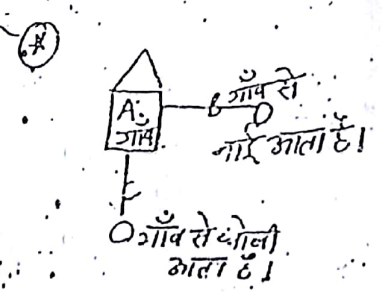 A:
गाँव
गाँव से
नाई आता है।
गाँव से धोबी
आता है।